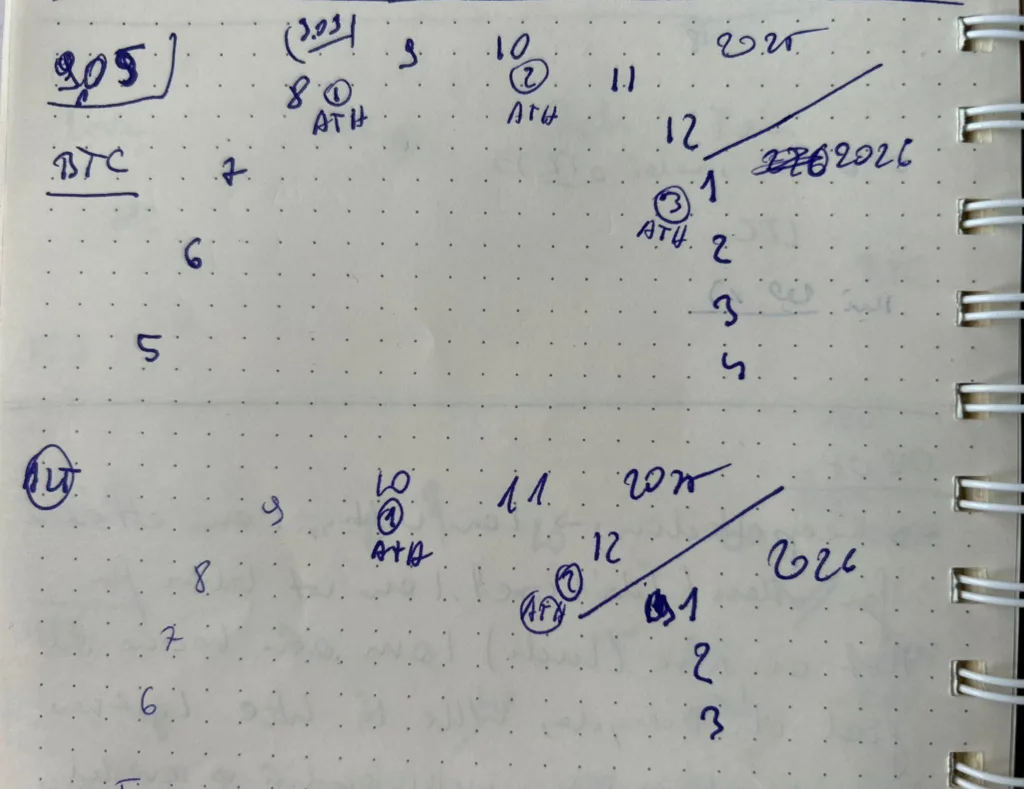 9.05
(3.09)
8 ① ATH
9
10 ② ATH
11
2025
12
BTC
7
2026
③ ATH
1
6
2
3
5
4
ALT
9
10 ① ATH
11
2025
12
8
② ATH
2026
1
7
2
6
3